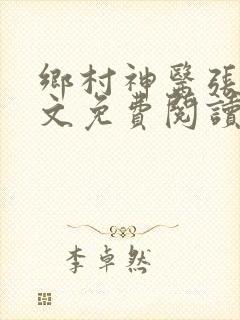 鄉村神醫張
文免費閱讀
李卓然